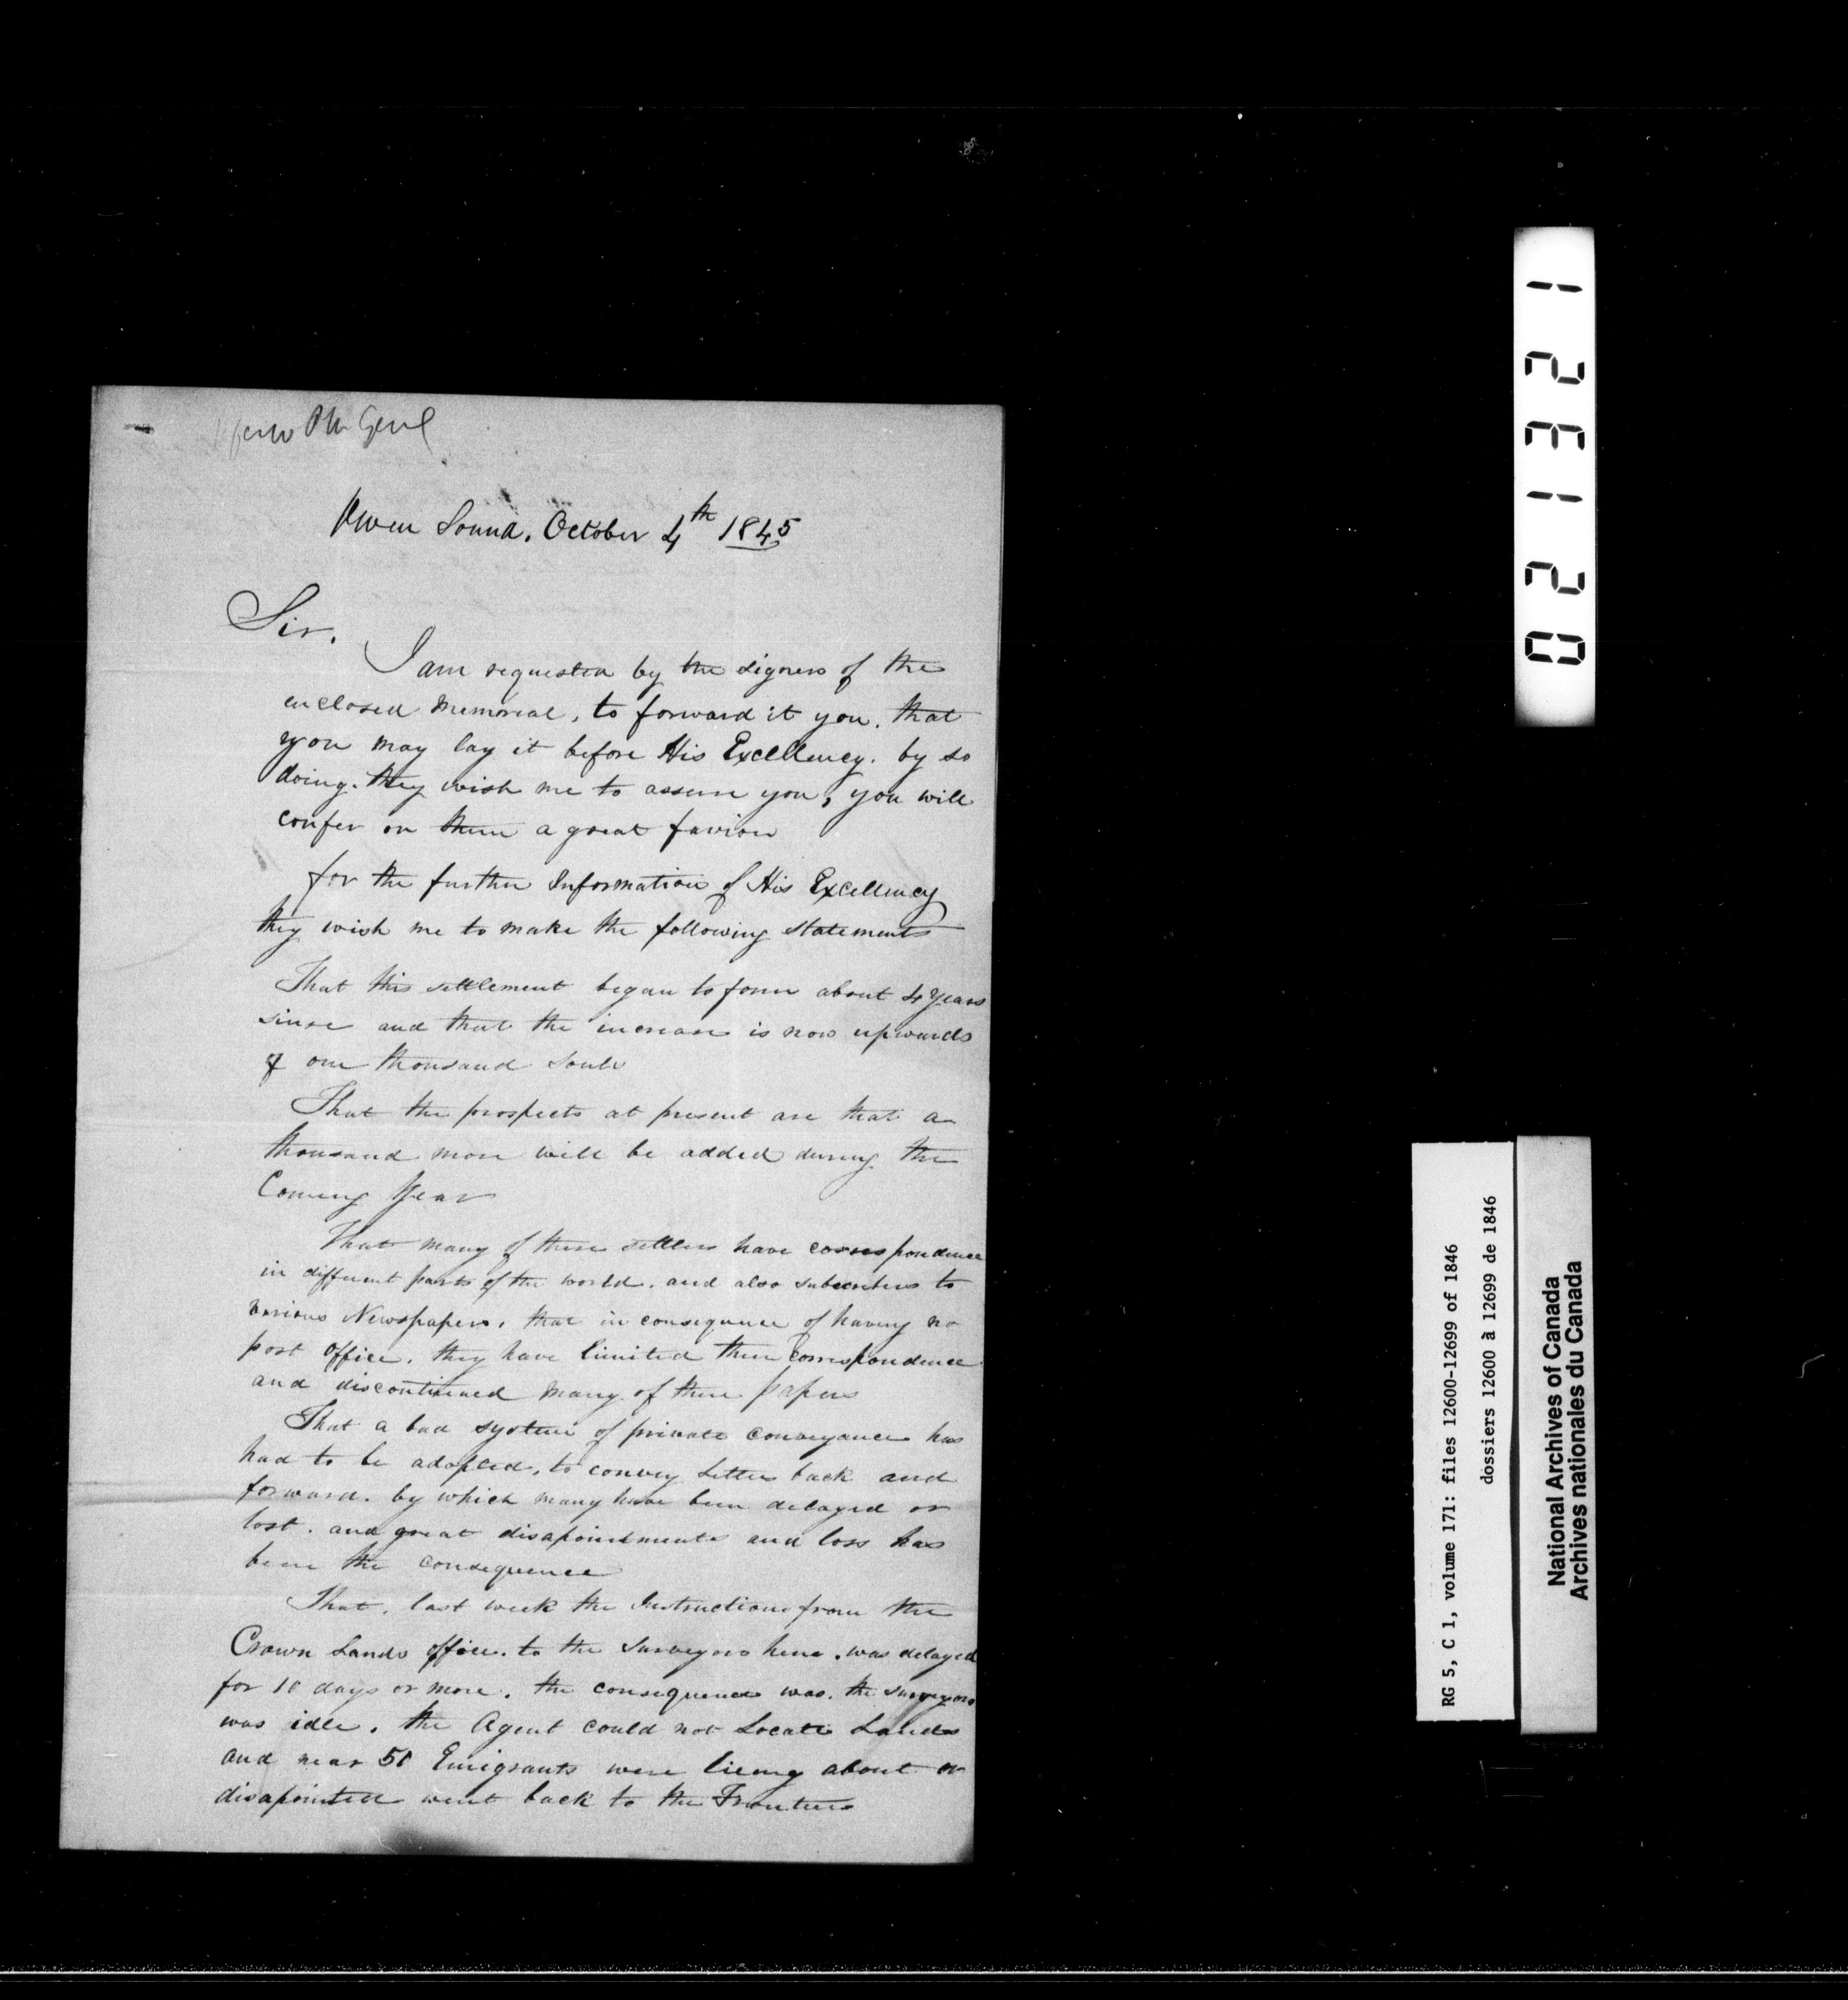 Refer to P M Genl
Owen Sound, October 4th 1845
Sir.
I am requested by the signers of the
enclosed Memorial, to forward it you, that
you may lay it before His Excellency. by so
doing. they wish me to assure you, you will
confer on them a great favior
for the further Information of His Excellency
they wish me to make the following statements
That this settlement began to form about 4 years
since and that the increase is now upwards
of one thousand souls
That the prospects at present are that a
thousand more will be added during the
Coming Year
That many of these settlers have correspondence
in different parts of the world. and also subscribers to
various Newspapers, that in consequence of having no
post office, they have limited their Correspondence
and discontinued many of these papers
That a bad system of private conveyance has
had to be adopted, to convey Letters back and
forward. by which many have been delayed or
lost. and great disapointments and loss has
been the consequence
That, last week the Instructions from the
Crown Lands office. to the Surveyors here, was delayed
for 10 days or more, the consequence was, the surveyors
was idle, the Agent could not Locate Lands
and near 50 Emigrants were lieing about or
disapointed went back to the Frontiers
021321
RG 5, C 1, volume 171: files 12600-12699 of 1846
dossiers 12600 à 12699 de 1846
National Archives of Canada
Archives nationales du Canada